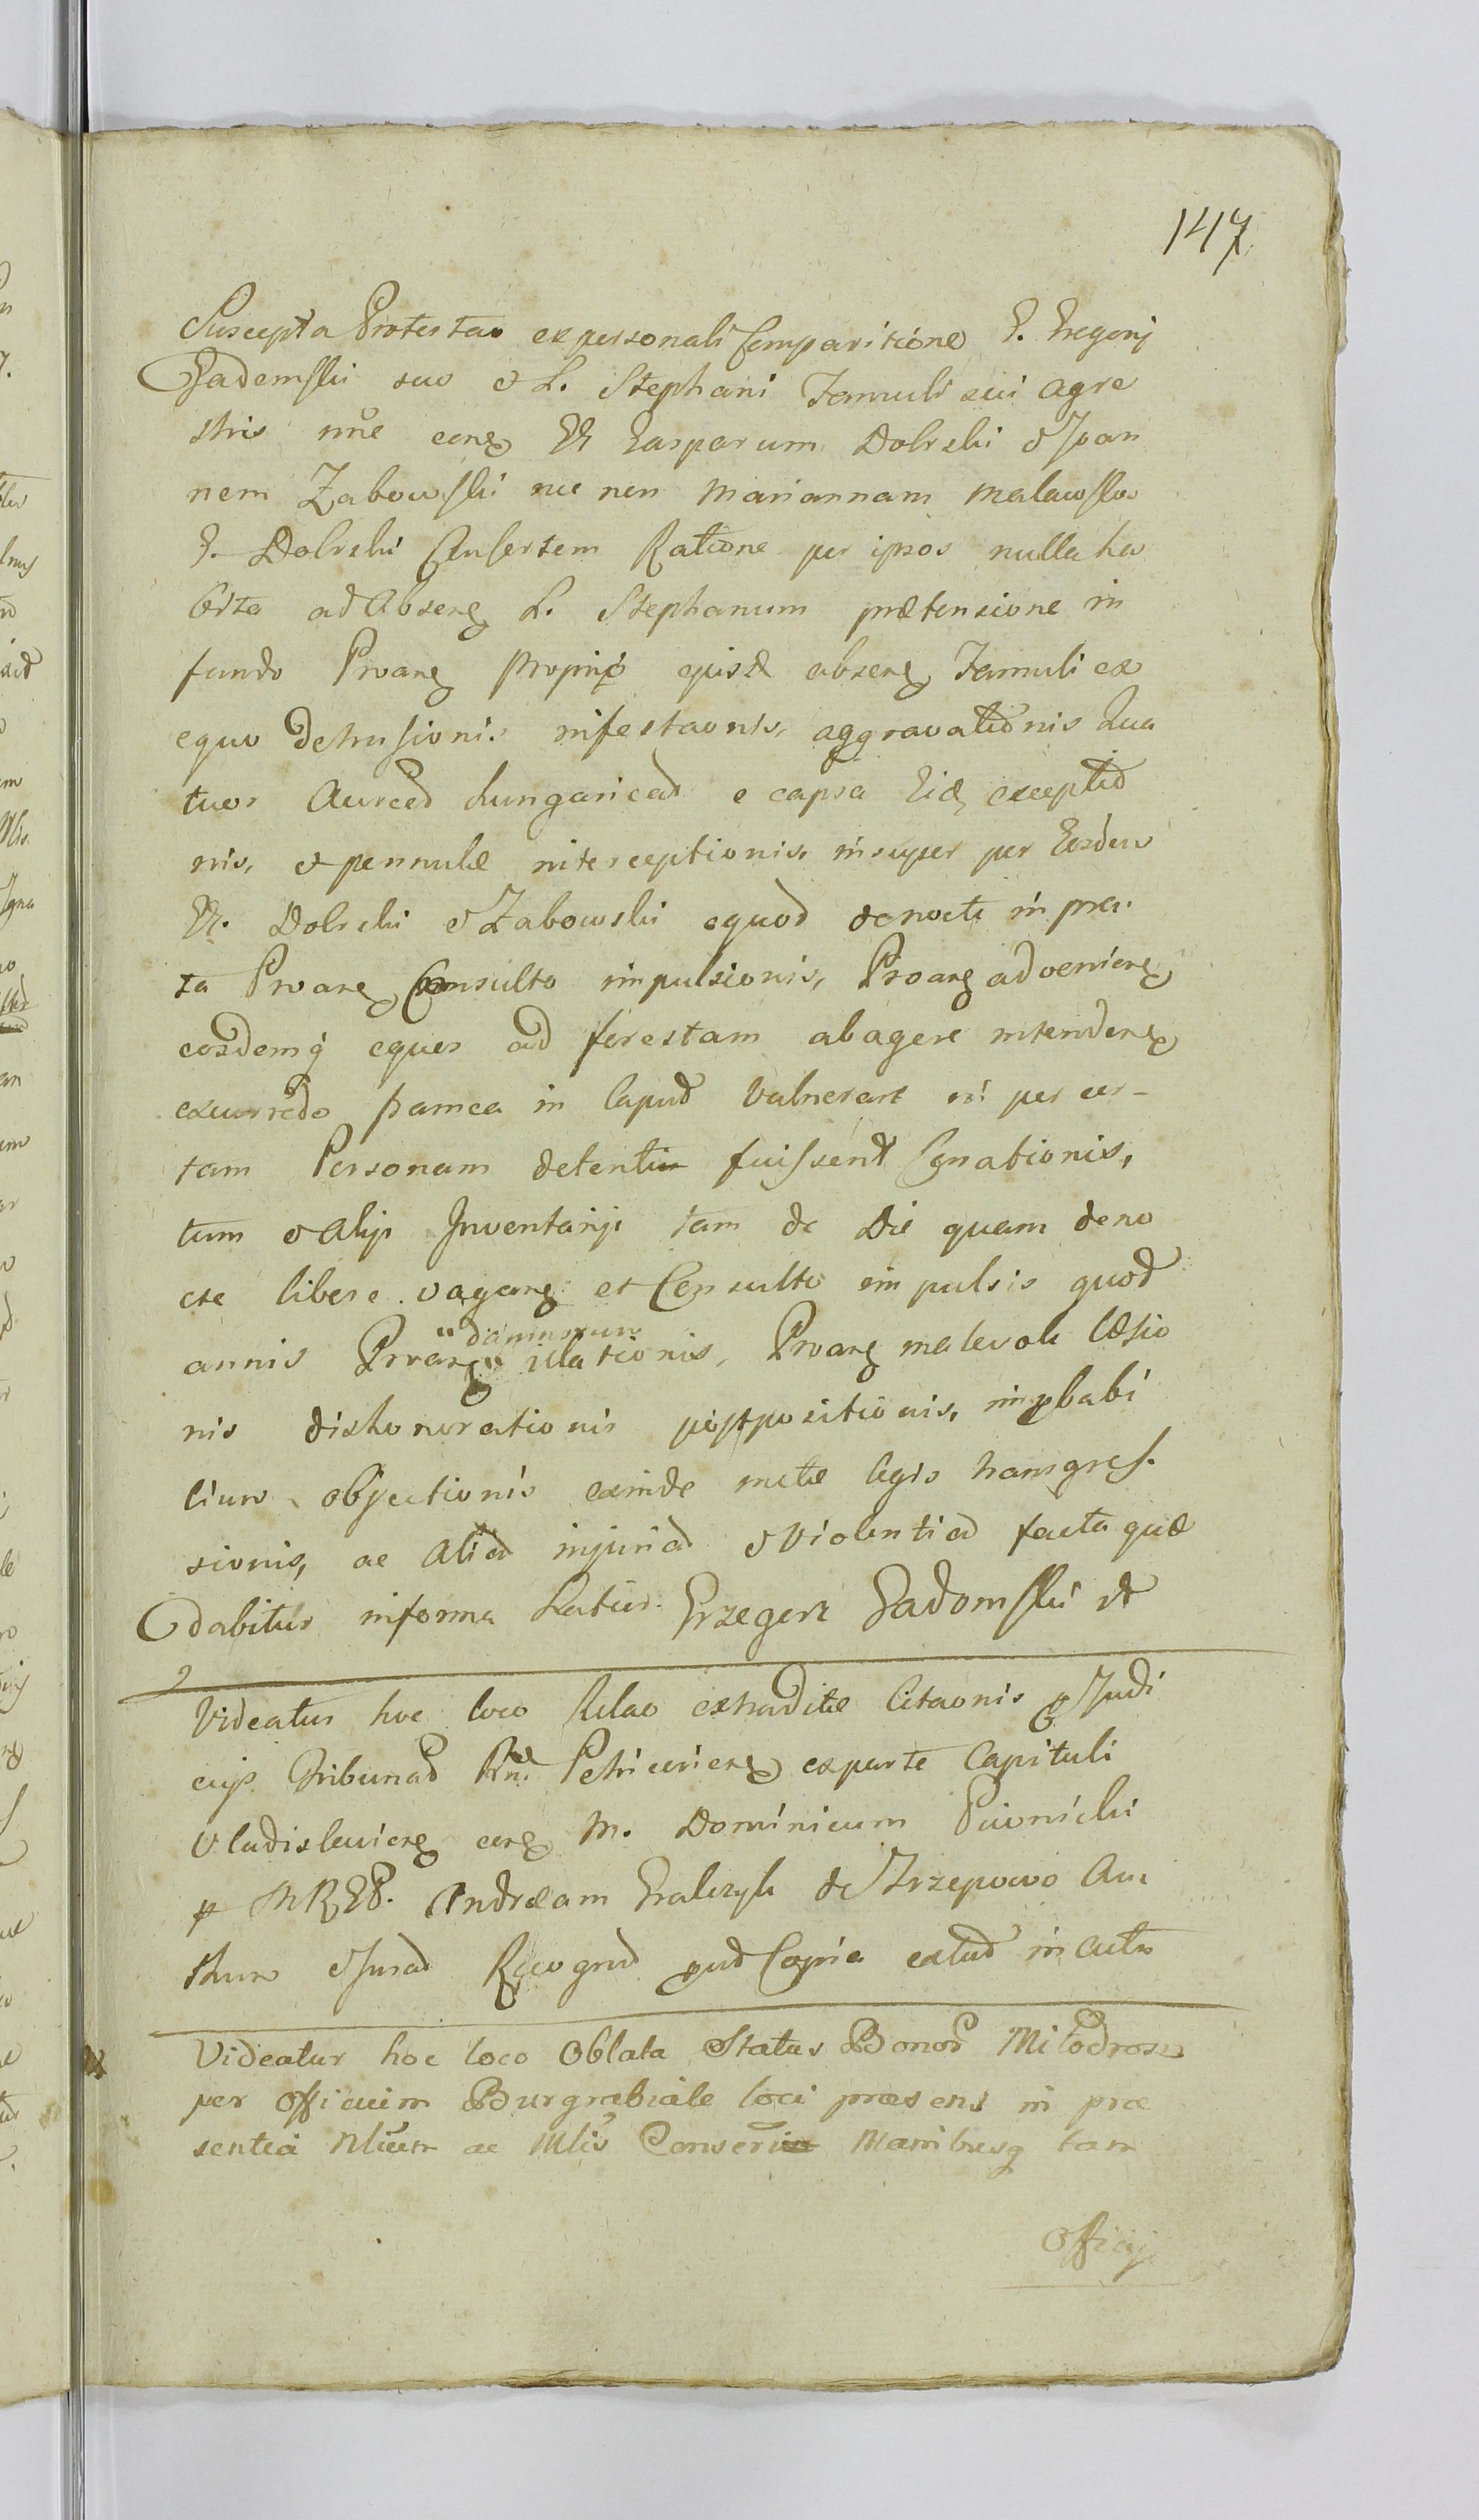 147
Suscepta Protestao ex personali Comparitione G. Gregorij
Gadomski suo et L. Stephani Famuli sui agre
stris nne contra GG Casparum Dolrski et Joan
nem Zabowski nec non Mariannam Malawska
G. Dolrski Consortem Ratione per ipsos nulla ha
bita ad Absentem L. Stephanum prætensione in
fundo Proan propri ejusd absen Famuli ex
equo detrusionis infestaonis, aggravationis Qua
tuor Aureod hungaricad e capsa Eid exceptio
nis, et pennulæ interceptionis, insuper per Eosdem
GG. Dolrski et Zabowski equod de nocte in pra
ta Proan Consulto impulsionis, Proan advenien
eosdemq equos ad forestam abagere intenden
excurrędo framea in Caput Vulnerare ni per cer-
tam Personam detenti fuissent Conationis,
tum et Alijs Inventarijs tam de Die quam de no
cte libere vagan et Consulto impulsis quod
annis Proan "damnorum" illationis, Proan malevole læsio
nis dishonorationis postpositionis, improbabi
lium objectionis exinde metæ legis transgres-
sionis, ac Aliad injuriad et Violentiad facta quæ
dabitur in forma Latius. Grzegorz Gadomski et
Videatur hoc loco Relao extraditæ Citaonis p Judi
cijs Tribunad Rni Petricovien ex parte Capituli
Vladislavien con M. Dominicum Piwnicki
p MRGB. Andræam Gralczyk de Trzepowo Au
thum et Jurad Recognd prd Copia extad in actis
Videatur hoc loco Oblata Status Bonor Milodroz
per Officium Burgrabiale loci præsens in præ
sentia Nlium ac Mlis Conserva Manibusq tam
Officij